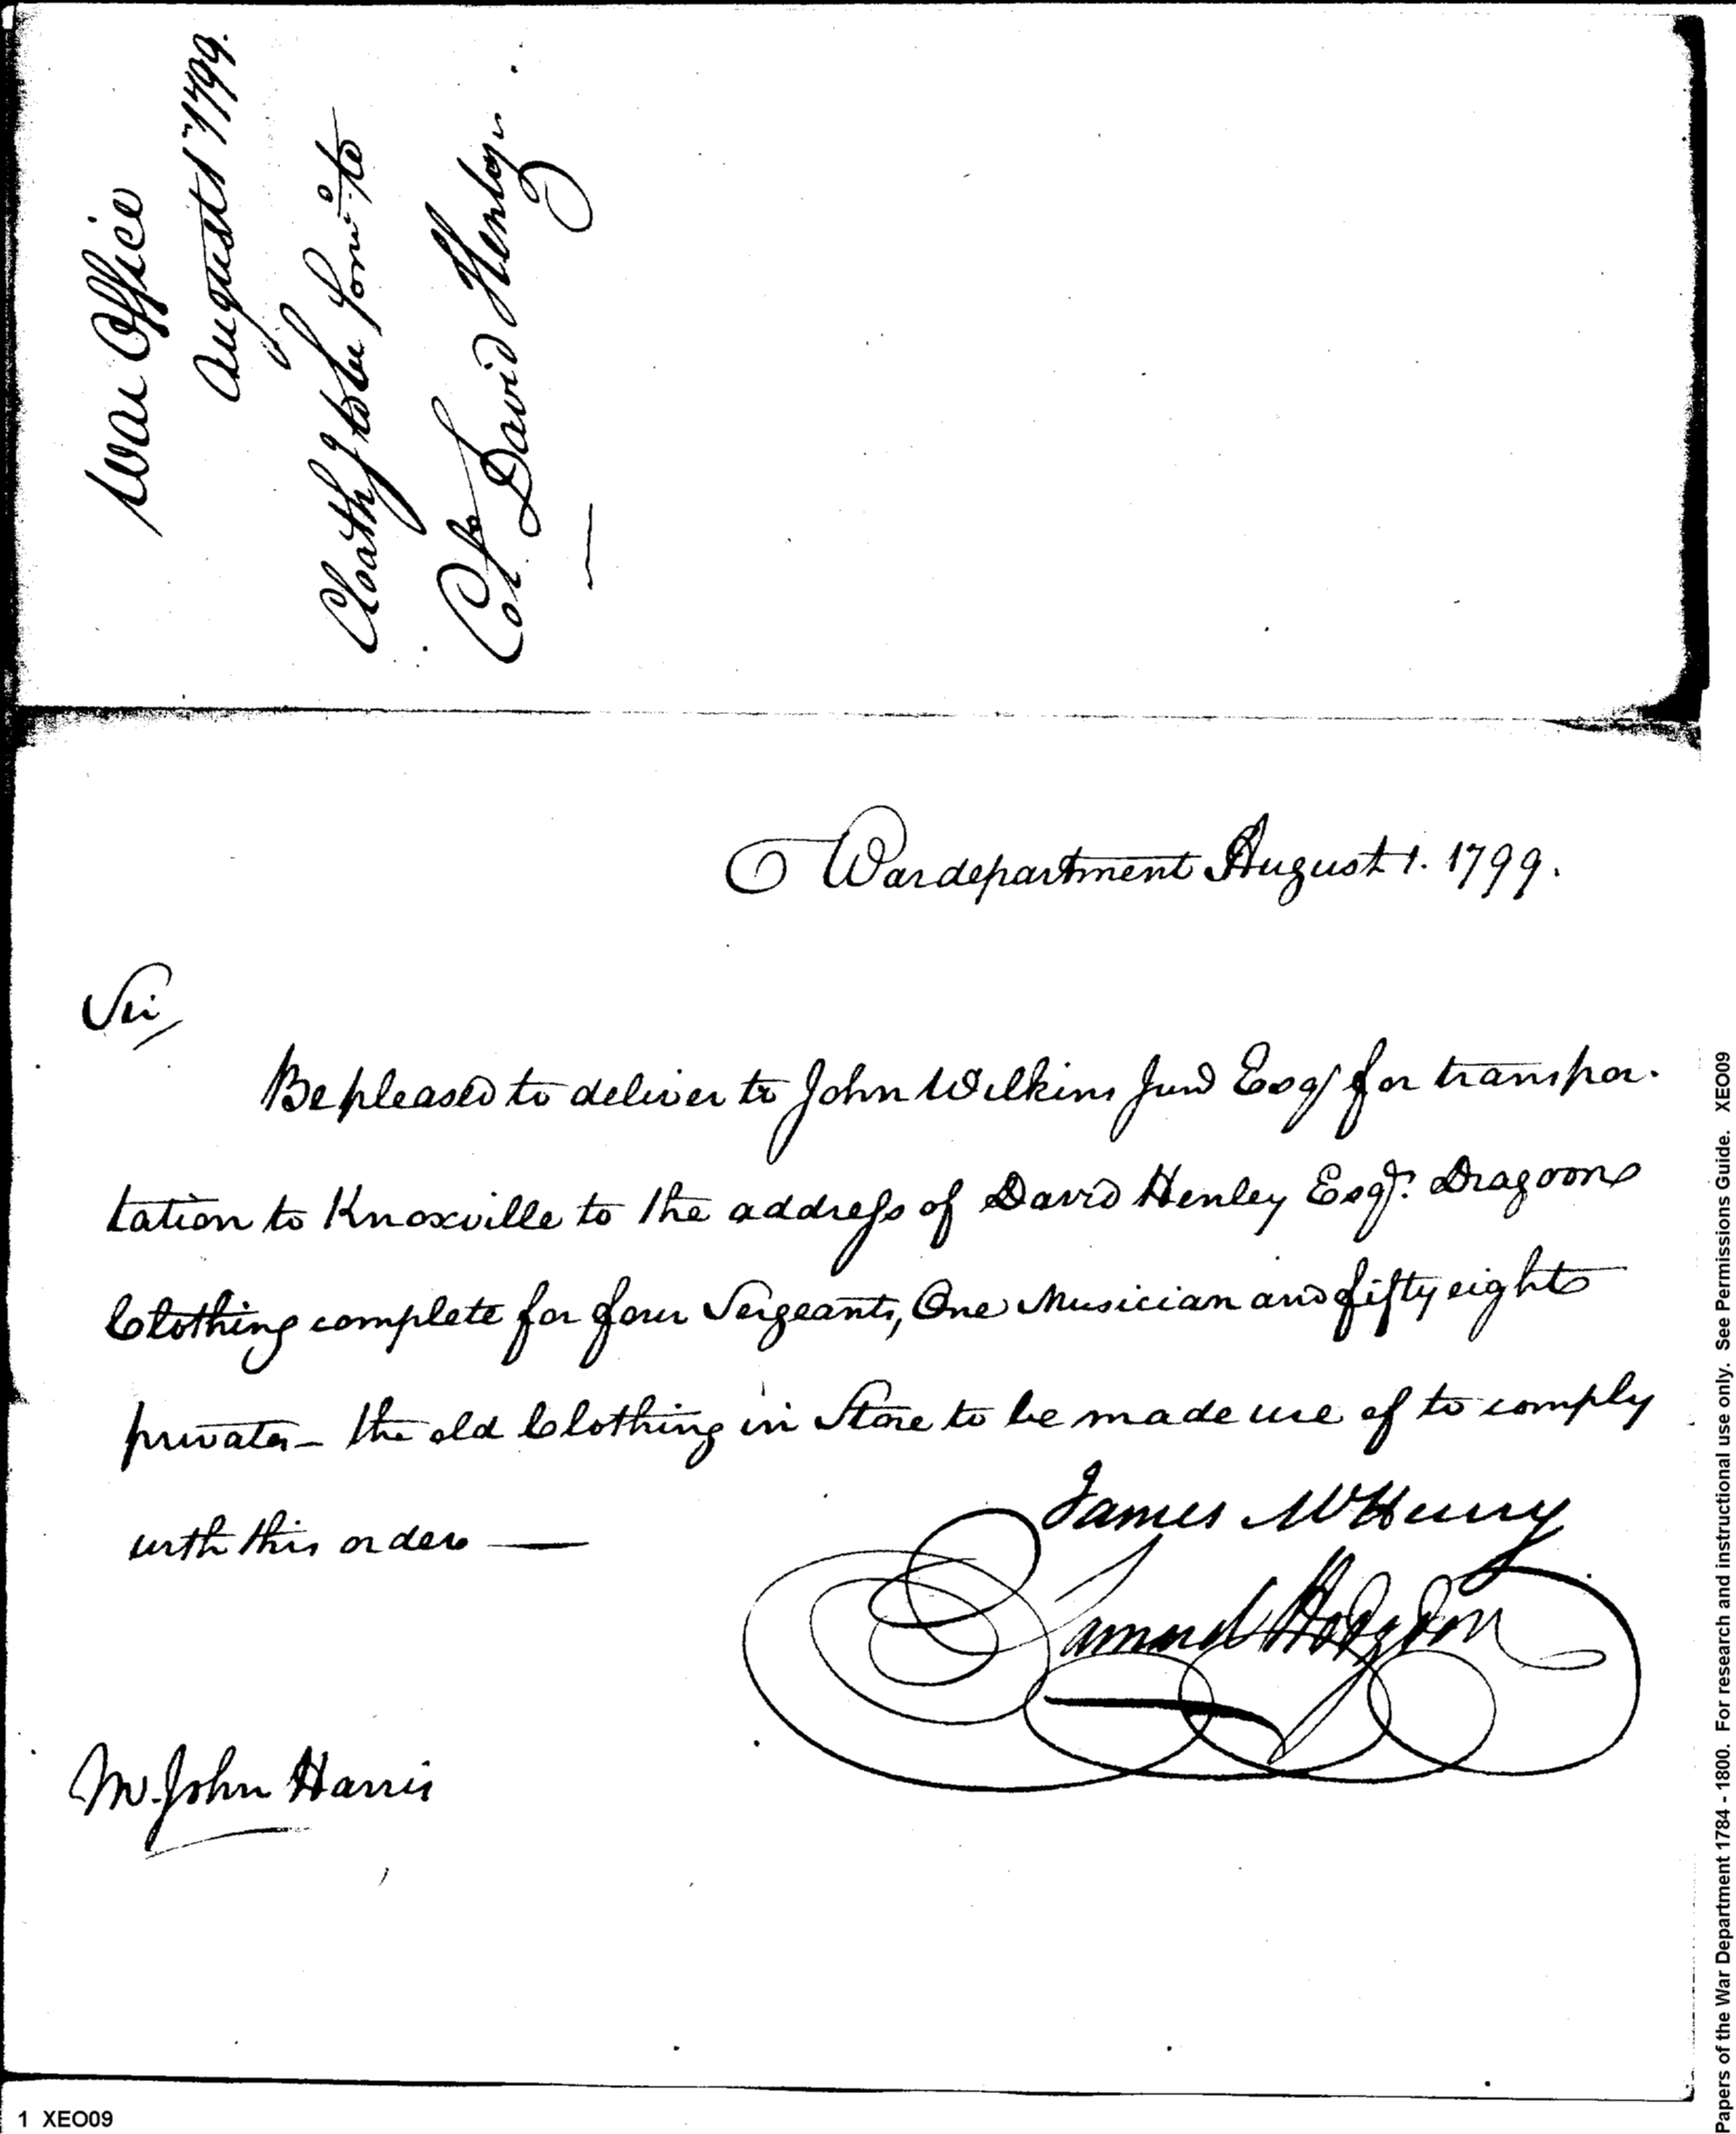 War Office
August 1 1799.
Cloathg to be forwd to
Colo. David Henley.
War department August 1. 1799.
Sir,
Be pleased to deliver to John Wilkins Junr Esqr for transpor-
tation to Knoxville to the address of David Henley Esqr. Dragoon
Clothing complete for four Sergeants, One Musician and fifty eight
privates – the old Clothing in Store to be made use of to comply
with this order —
James McHenry
Samuel Hodgdon
Mr. John Harris
Papers of the War Department 1784 - 1800. For research and instructional use only. See Permissions Guide. XEO09
1 XEO09